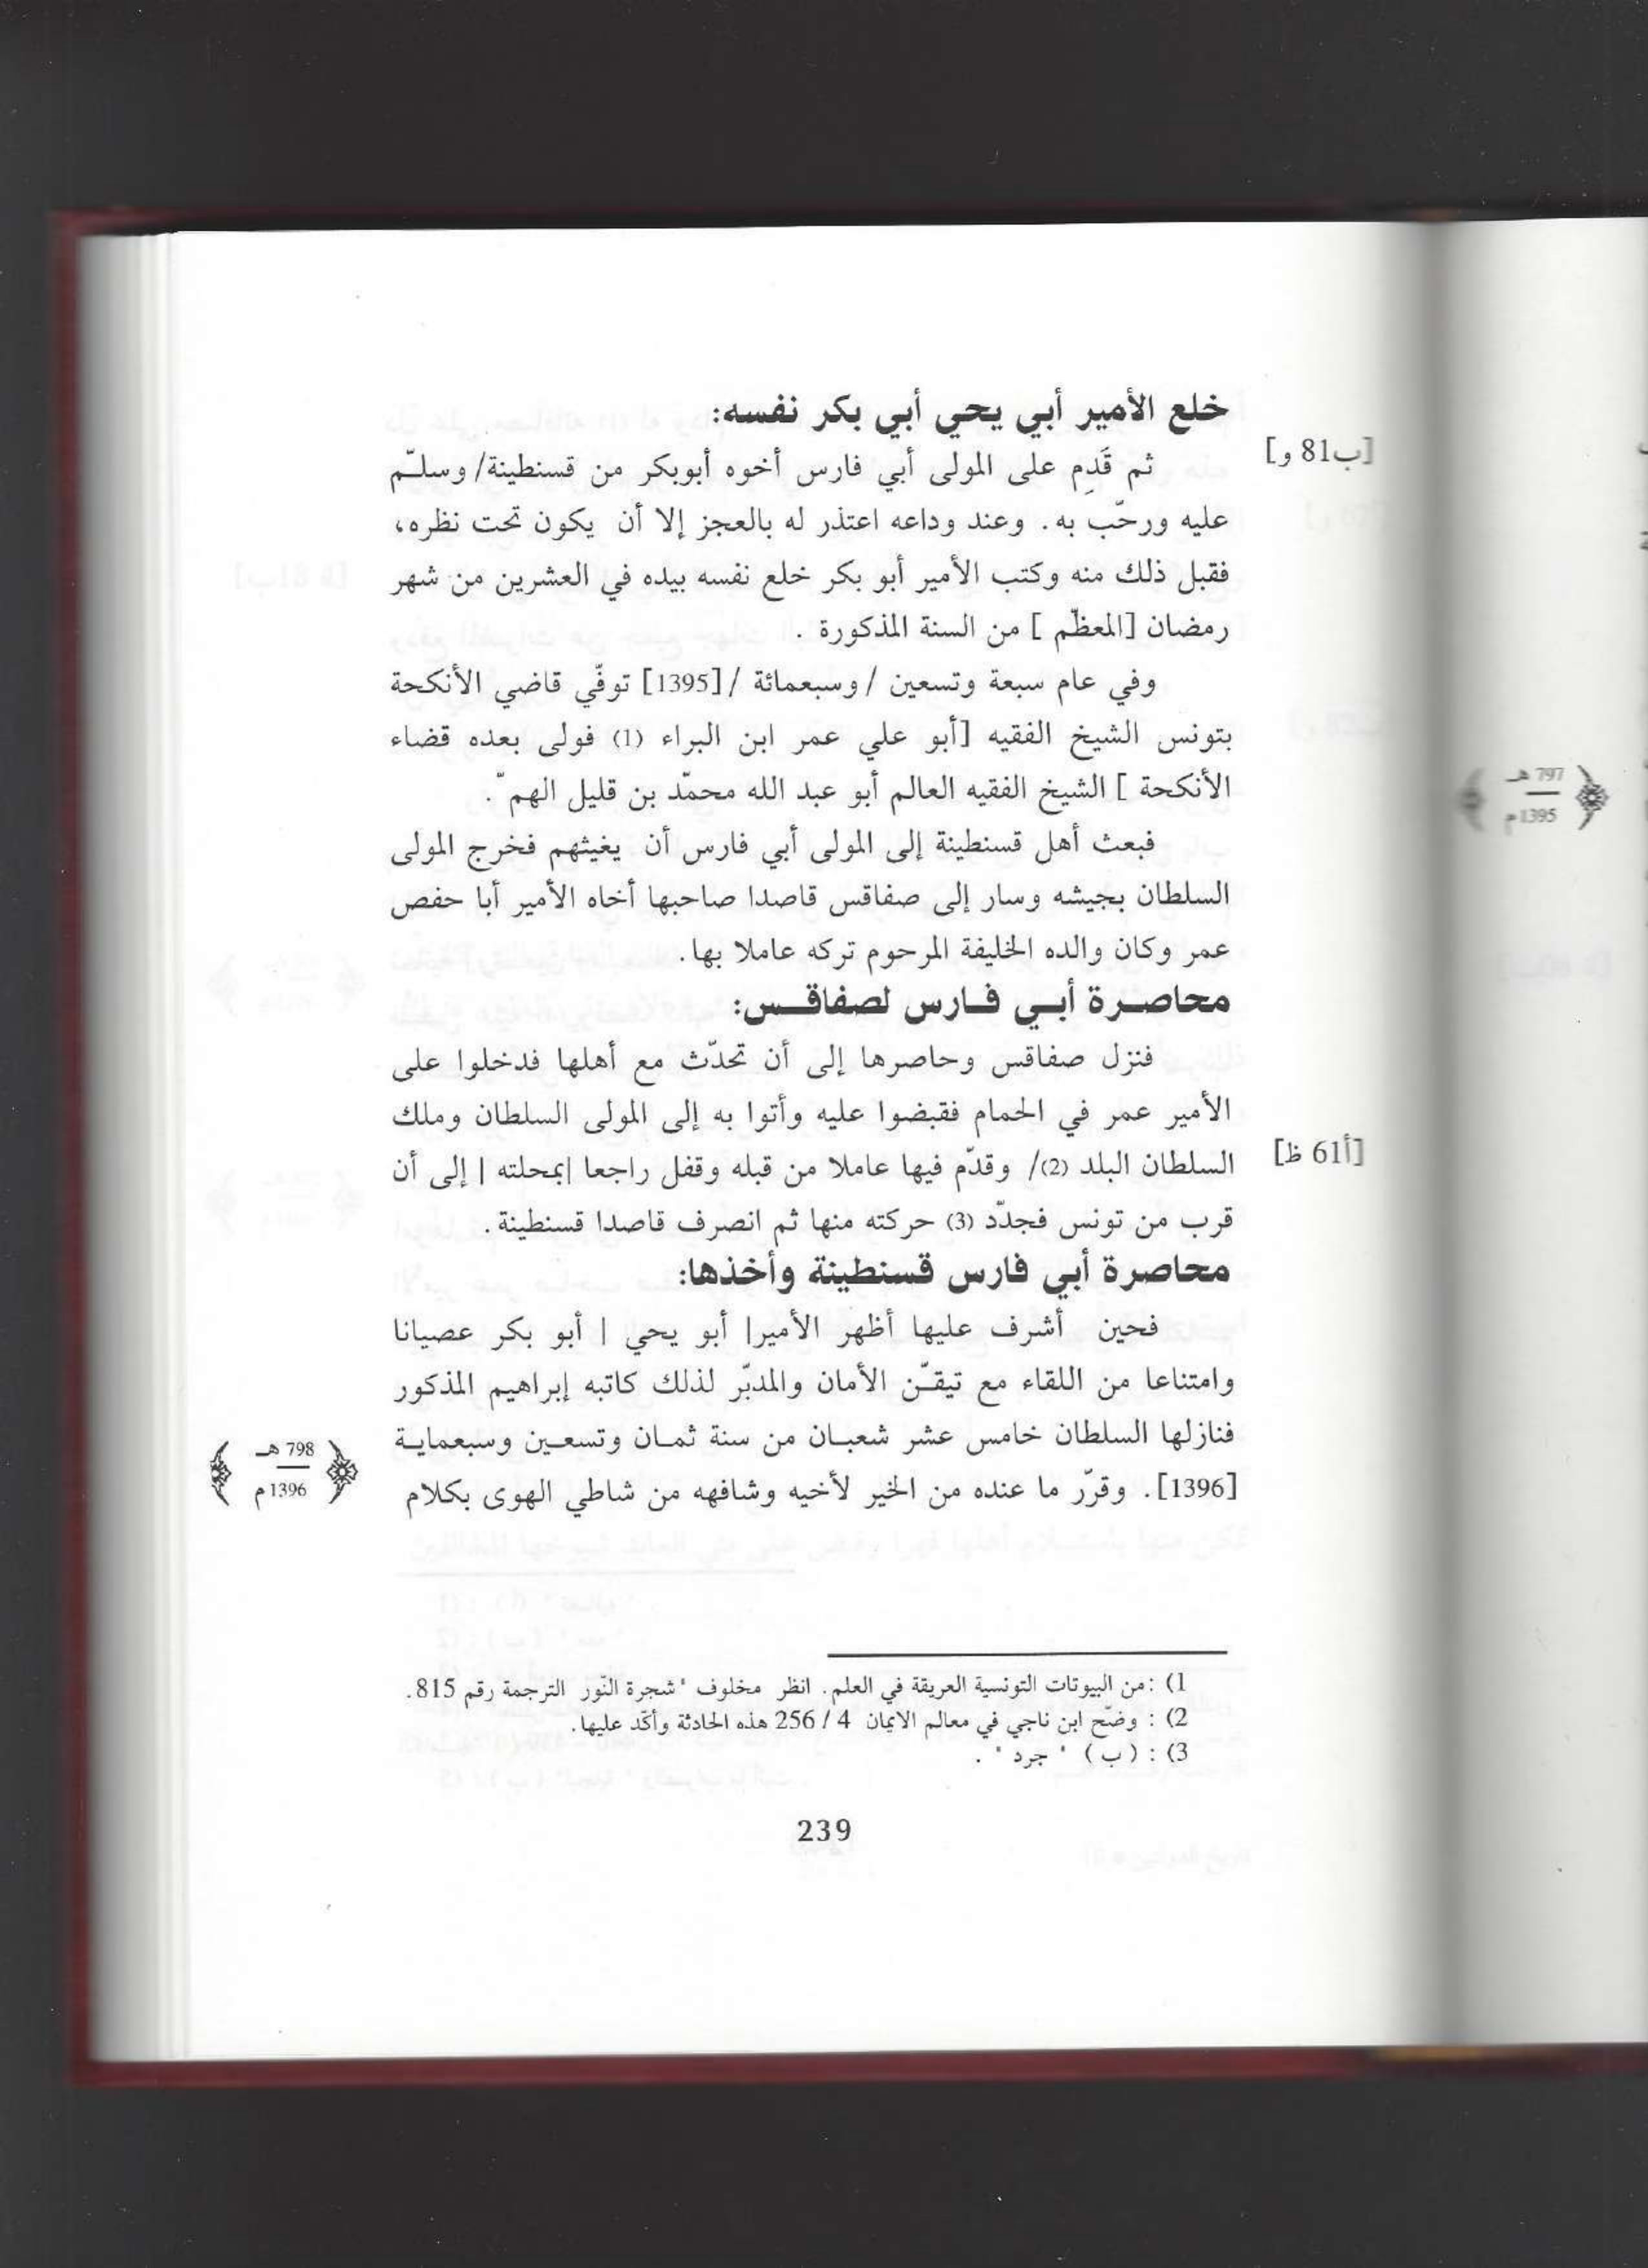 خلع الأمير أبي يحي أبي بكر نفسه:
[ب81 و]
ثم قَدِم على المولى أبي فارس أخوه أبوبكر من قسنطينة/ وسلّم
عليه ورحّب به. وعند وداعه اعتذر له بالعجز إلا أن يكون تحت نظره،
فقبل ذلك منه وكتب الأمير أبو بكر خلع نفسه بيده في العشرين من شهر
رمضان [المعظّم ] من السنة المذكورة .
وفي عام سبعة وتسعين /وسبعمائة /[1395] توفّي قاضي الأنكحة
بتونس الشيخ الفقيه [أبو علي عمر ابن البراء (1) فولى بعده قضاء
الأنكحة ] الشيخ الفقيه العالم أبو عبد الله محمّد بن قليل الهمّ.
فبعث أهل قسنطينة إلى المولى أبي فارس أن يغيثهم فخرج المولى
السلطان بجيشه وسار إلى صفاقس قاصدا صاحبها أخاه الأمير أبا حفص
عمر وكان والده الخليفة المرحوم تركه عاملا بها.
محاصرة أبي فارس لصفاقس:
فنزل صفاقس وحاصرها إلى أن تحدّث مع أهلها فدخلوا على
الأمير عمر في الحمام فقبضوا عليه وأتوا به إلى المولى السلطان وملك
[أ61 ظ]
السلطان البلد (2)/ وقدّم فيها عاملا من قبله وقفل راجعا |بمحلته | إلى أن
قرب من تونس فجدّد (3) حركته منها ثم انصرف قاصدا قسنطينة.
محاصرة أبي فارس قسنطينة وأخذها:
فحين أشرف عليها أظهر الأمير| أبو يحي | أبو بكر عصيانا
وامتناعا من اللقاء مع تيقّن الأمان والمدبّر لذلك كاتبه إبراهيم المذكور
فنازلها السلطان خامس عشر شعبان من سنة ثمان وتسعين وسبعماية
798 هـ
1396 م
[1396]. وقرّر ما عنده من الخير لأخيه وشافهه من شاطي الهوى بكلام
1) :من البيوتات التونسية العريقة في العلم. انظر مخلوف "شجرة النّور الترجمة رقم 815.
2) : وضّح ابن ناجي في معالم الايمان 4 / 256 هذه الحادثة وأكّد عليها.
3) : (ب ) " جرد " .
239
797 هـ
1395 م